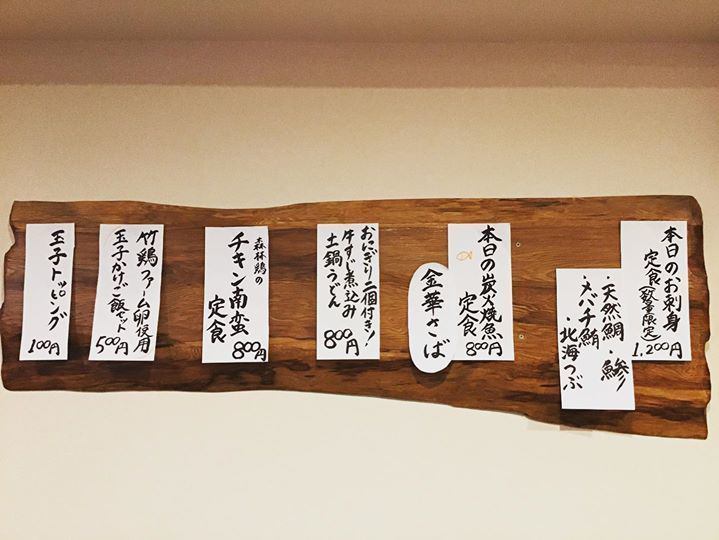 本日のお刺身
定食(数量限定)
1,200円
・天然鯛・鯵
・メバチ鮪
・北海つぶ
本日の炭火焼魚
定食
800円
金華さば
おにぎり二個付き!
牛すじ煮込み
土鍋うどん
800円
森林鶏の
チキン南蛮
定食
800円
竹鶏ファーム卵使用
玉子かけご飯セット
500円
玉子トッピング
100円